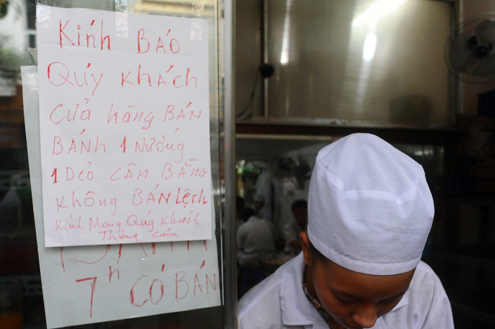 Kính BÁO
QuÝ KHÁCH
CỬA hÀng BÁN
BÁNH 1 NƯỚng
1 DẺO CÂM BẰNG
KHÔNG BÁN LỆCH
Kính Mong Quý Khách
Thông Cảm
7h CÓ BÁN